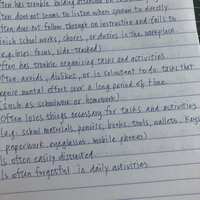 ften has trouble holding attention on tas
ften does not seem to listen when spoken to directly
ften does not follow through on instructions and fails to
inish school works, chores, or duties in the workplace
e.g. loses focus, side-tracked)
ften has trouble organizing tasks and activities
ften avoids, dislikes, or is reluctant to do tasks that
equire mental effort over a long period of time
(such as schoolwork or homework)
ften loses things necessary for tasks and activities
(e.g. school materials, pencils, books, tools, wallets, keys
paperwork, eyeglasses, mobile phones)
Is often easily distracted
Is often forgetful in daily activities